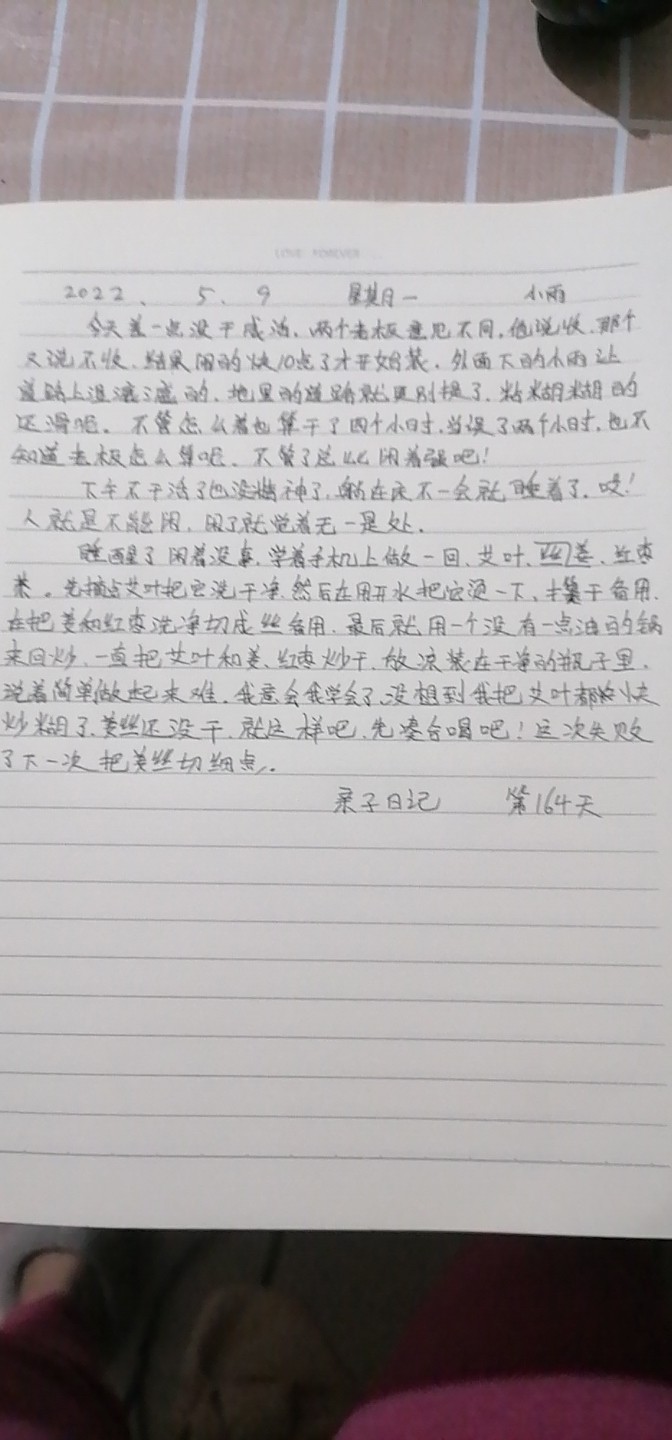 LOVE FOREVER
2022. 5. 9 星期一 小雨
今天差一点没干成活,两个老板意见不同,他说收,那个
又说不收,结果闹的快10点了才开始装,外面下的小雨让
道路上湿漉漉的,地里的道路就更别提了,粘糊糊的
还滑呢。不管怎么着也算干了四个小时,当误了两个小时,也不
知道老板怎么算呢,不管了总比闲着强吧!
下午不干活了也没精神了,躺在床不一会就睡着了,哎!
人就是不能闲,闲了就觉着无一是处.
睡醒了闲着没事,学着手机上做一回,艾叶,姜,红枣
茶。先摘点艾叶把它洗干净,然后在用开水把它烫一下,干备用,
在把姜和红枣洗净切成丝备用,最后就用一个没有一点油的锅
来回炒,一直把艾叶和姜、红枣炒干,放凉装在干净的瓶子里,
说着简单做起来难,我意会我学会了,没想到我把艾叶都快
炒糊了,姜丝还没干,就这样吧,先凑合喝吧!这次失败
了下一次把姜丝切细点.
亲子日记 第164天